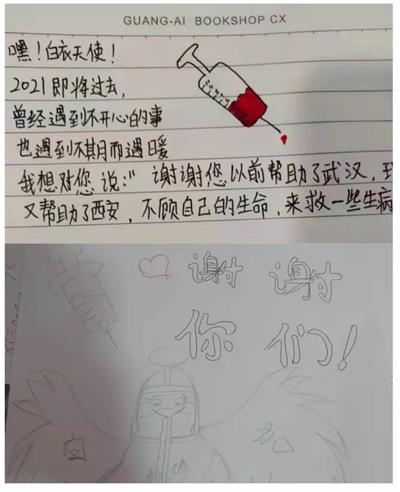 GUANG-AI BOOKSHOP CX
嘿！白衣天使！
2021即将过去，
曾经遇到不开心的事
也遇到不期而遇暖
我想对您说：“谢谢您以前帮助了武汉，
又帮助了西安，不顾自己的生命，来救一些生病
谢谢
你们！